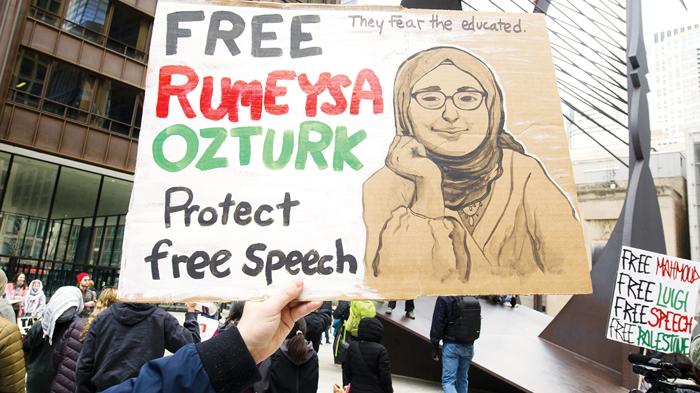 FREE
They fear the educated.
RUMEYSA
OZTURK
Protect
free Speech
FREE MAHMOUD
FREE LUIGI
FREE SPEECH
FREE PALESTINE